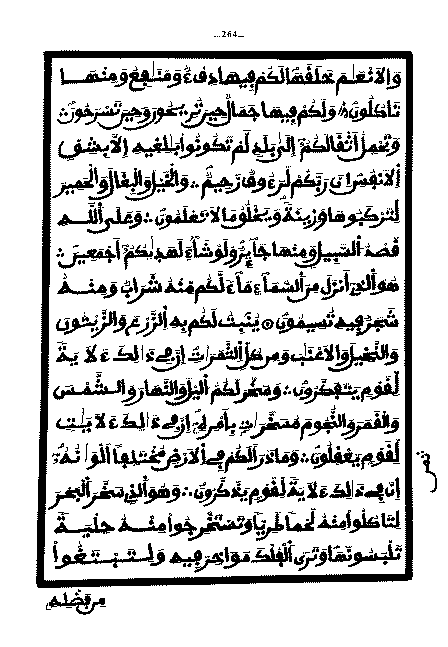 _264_
وَالَانْعَٰمَ خَلَقَهَا لَكُمْ فِيهَا دِفْءٌ وَمَنَٰفِعُ وَمِنْهَا
تَاكُلُونَ ۝ وَلَكُمْ فِيهَا جَمَالٌ حِينَ تُرِيحُونَ وَحِينَ تَسْرَحُونَ ۝
وَتَحْمِلُ أَثْقَالَكُمْ إِلَىٰ بَلَدٍ لَّمْ تَكُونُوا بَٰلِغِيهِ إِلَّا بِشِقِّ
اِلَانفُسِ إِنَّ رَبَّكُمْ لَرَءُوفٌ رَّحِيمٌ ۝ وَالْخَيْلَ وَالْبِغَالَ وَالْحَمِيرَ
لِتَرْكَبُوهَا وَزِينَةً وَيَخْلُقُ مَا لَا تَعْلَمُونَ ۝ وَعَلَى اَللَّهِ
قَصْدُ اُلسَّبِيلِ وَمِنْهَا جَآئِرٌ وَلَوْ شَآءَ لَهَدَىٰكُمْ أَجْمَعِينَ ۝
هُوَ اَلذِي أَنزَلَ مِنَ اَلسَّمَآءِ مَآءً لَّكُم مِّنْهُ شَرَابٌ وَمِنْهُ
شَجَرٌ فِيهِ تُسِيمُونَ ۝ يُنۢبِتُ لَكُم بِهِ اِلزَّرْعَ وَالزَّيْتُونَ
وَالنَّخِيلَ وَالَاعْنَٰبَ وَمِن كُلِّ اِلثَّمَرَٰتِ إِنَّ فِي ذَٰلِكَ ءَلَايَةً
لِّقَوْمٍ يَتَفَكَّرُونَ ۝ وَسَخَّرَ لَكُمُ اُليْلَ وَالنَّهَارَ وَالشَّمْسَ
وَالْقَمَرَ وَالنُّجُومَ مُسَخَّرَٰتٍۭ بِأَمْرِهِ إِنَّ فِي ذَٰلِكَ ءَلَايَٰتٍ
لِّقَوْمٍ يَعْقِلُونَ ۝ وَمَا ذَرَأَ لَكُمْ فِي اِلَارْضِ مُخْتَلِفاً اَلْوَٰنُهُ
إِنَّ فِي ذَٰلِكَ ءَلَايَةً لِّقَوْمٍ يَذَّكَّرُونَ ۝ وَهُوَ اَلذِي سَخَّرَ اَلْبَحْرَ
لِتَاكُلُوا مِنْهُ لَحْماً طَرِيّاً وَتَسْتَخْرِجُوا مِنْهُ حِلْيَةً
تَلْبَسُونَهَا وَتَرَى اَلْفُلْكَ مَوَاخِرَ فِيهِ وَلِتَبْتَغُوا
ثمن
من فضله